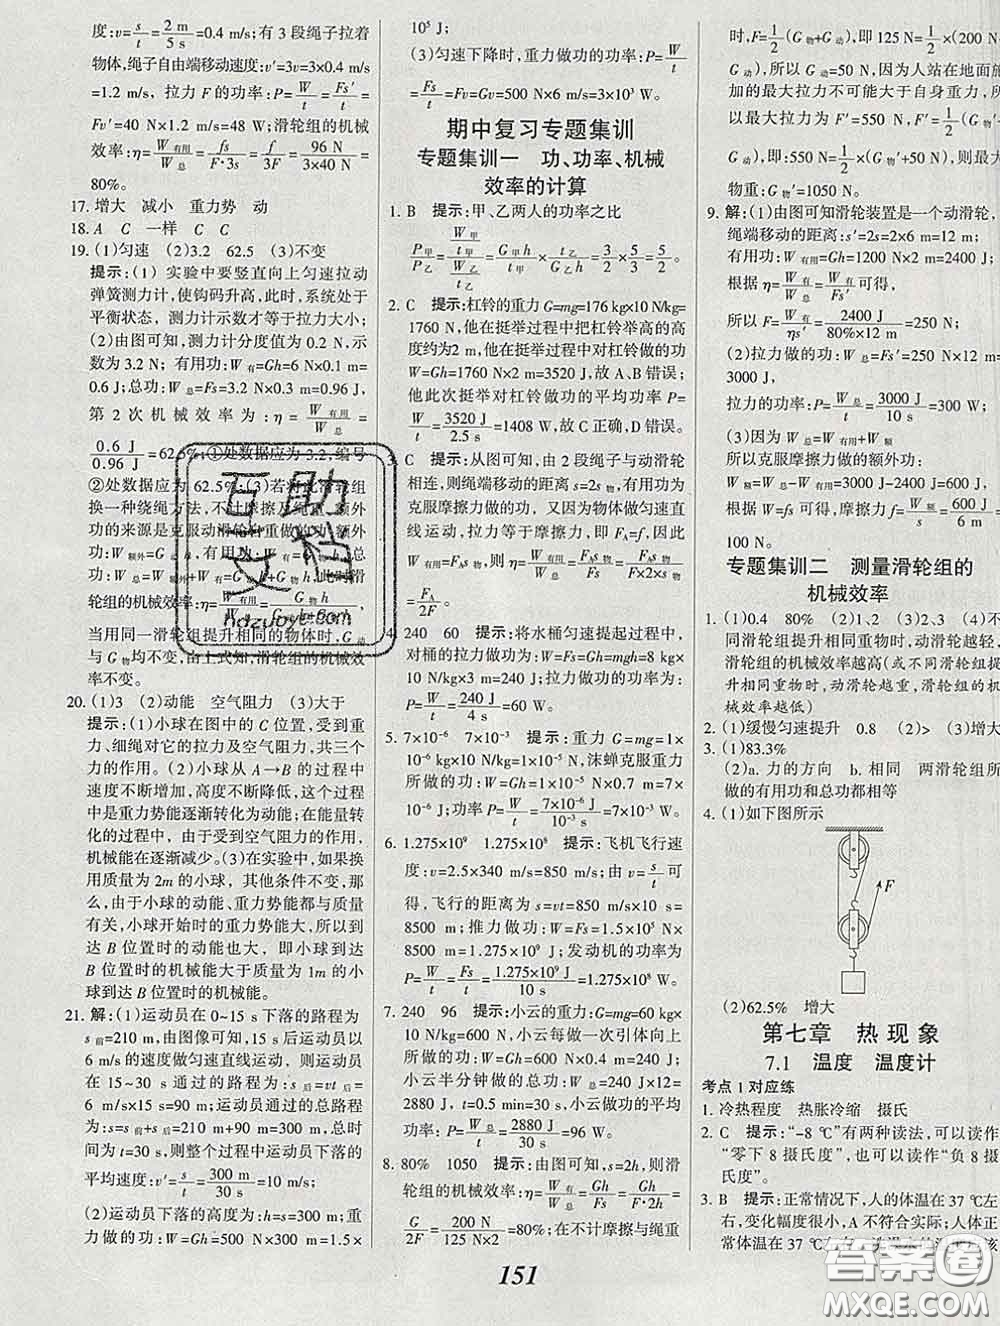 度:v=s/t=2 m/5 s=0.4 m/s;有 3 段绳子拉着
物体,绳子自由端移动速度:v′=3v=3×0.4 m/s
=1.2 m/s,拉力 F 的功率:P=W/t=Fs′/t=
Fv′=40 N×1.2 m/s=48 W;滑轮组的机械
效率:η=W有用/W总=fs/F·3s=f/3F=96 N/3×40 N=
80%。
17. 增大 减小 重力势 动
18. A C 一样 C C
19. (1)匀速 (2)3.2 62.5 (3)不变
提示:(1) 实验中要竖直向上匀速拉动
弹簧测力计,使钩码升高,此时,系统处于
平衡状态,测力计示数才等于拉力大小;
(2)由图可知,测力计分度值为 0.2 N,示
数为 3.2 N;有用功:W有用=Gh=6 N×0.1 m=
0.6 J;总功:W总=Fs=3.2 N×0.3 m=0.96 J,
第 2 次机械效率为:η=W有用/W总=
0.6 J/0.96 J=62.5%;①处数据应为 3.2,编号
②处数据应为 62.5;(3)若将此滑轮组
换一种绕绳方法,不计摩擦及绳重,额外
功的来源是克服动滑轮重做的功,额外
功:W额外=G动h,有用功:W有=G物h,总
功:W总=W额外+W有用=G动h+G物h,此时滑
轮组的机械效率:η=W有用/W总=G物h/G动h+G物h,
当用同一滑轮组提升相同的物体时,G动
与 G物均不变,由上式知,滑轮组的机械效
率不变。
20. (1)3 (2)动能 空气阻力 (3)大于
提示:(1)小球在图中的 C 位置,受到重
力、细绳对它的拉力及空气阻力,共三个
力的作用。(2)小球从 A→B 的过程中
速度不断增加,高度不断降低,这个过程
中是重力势能逐渐转化为动能;在能量转
化的过程中,由于受到空气阻力的作用,
机械能在逐渐减少。(3)在实验中,如果换
用质量为 2m 的小球,其他条件不变,那
么,由于小球的动能、重力势能都与质量
有关,小球开始时的重力势能大,所以到
达 B 位置时的动能也大,即小球到达
B 位置时的机械能大于质量为 1m 的小
球到达 B 位置时的机械能。
21. 解:(1)运动员在 0~15 s 下落的路程为
s前=210 m,由图像可知,15~30 s 运动员以
6 m/s 的速度做匀速直线运动,则运动员
在 15~30 s 通过的路程为:s后=v后t后=
6 m/s×15 s=90 m;运动员通过的总路程
为:s=s前+s后=210 m+90 m=300 m,时间
为 t=30 s,则整个过程中运动员下落的
平均速度:v′=s/t=300 m/30 s=10 m/s;
(2)运动员下落的高度为:h=s=300 m;重
力做功为:W=Gh=500 N×300 m=1.5×
10⁵ J;
(3)匀速下降时,重力做功的功率:P=W/t
=Fs/t=Fv=Gv=500 N×6 m/s=3×10³ W。
期中复习专题集训
专题集训一 功、功率、机械
效率的计算
1. B 提示:甲、乙两人的功率之比
P甲/P乙=W甲/t甲/W乙/t乙=G甲h/G乙h×t乙/t甲=3/2×5/5=3/2。
2. C 提示:杠铃的重力 G=mg=176 kg×10 N/kg=
1760 N,他在挺举过程中把杠铃举高的高
度约为2 m,他在挺举过程中对杠铃做的功
W=Gh=1760 N×2 m=3520 J,故 A、B 错误;
他此次挺举对杠铃做功的平均功率 P=
W/t=3520 J/2.5 s=1408 W,故 C 正确,D 错误。
C 提示:从图可知,由 2 段绳子与动滑轮
相连,则绳端移动的距离 s=2s物,有用功是
克服摩擦力做的功,又因为物体做匀速直
线运动,拉力等于摩擦力,即 FA=f,有用功
W有用=FAs物,则 η=W有用/W总=FAs物/Fs=FAs物/F×2×s物=
FA/2F。
4. 240 60 提示:将水桶匀速提起过程中,
对桶的拉力做功:W=Fs=Gh=mgh=8 kg
×10 N/kg×3 m=240 J;拉力做功的功率为:
P=W/t=240 J/4 s=60 W。
5. 7×10⁻⁶ 7×10⁻³ 提示:重力 G=mg=1×
10⁻⁶kg×10 N/kg=1×10⁻⁵ N,沫蝉克服重力
所做的功:W=Gh=1×10⁻⁵ N×0.7 m=7×
10⁻⁶ J;功率 P=W/t=7×10⁻⁶ J/10⁻³ s=7×10⁻³ W。
6. 1.275×10⁹ 1.275×10⁸ 提示:飞机飞行速
度:v=2.5×340 m/s=850 m/s;由 v=s/t 可
得,飞行的距离为 s=vt=850 m/s×10 s=
8500 m;推力做功 W=Fs=1.5×10⁵ N×
8500 m=1.275×10⁹ J;发动机的功率为
P=W/t=Fs/t=1.275×10⁹ J/10 s=1.275×10⁸ W。
7. 240 96 提示:小云的重力:G=mg=60 kg
×10 N/kg=600 N,小云每做一次引体向上
所做的功:W=Gh=600 N×0.4 m=240 J;
小云半分钟做的总功:W总=240 J×12=
2880 J,t=0.5 min=30 s,小云做功的平均
功率:P=W总/t=2880 J/30 s=96 W。
8. 80% 1050 提示:由图可知,s=2h,则滑
轮组的机械效率:η=W有/W总=Gh/Fs=Gh/F·2h=
G/2F=200 N/125 N×2=80%;在不计摩擦与绳重
时,F=1/2(G物+G动),即 125 N=1/2×(200 N+
G动),所以 G动=50 N,因为人站在地面施
加的最大拉力不可能大于自身重力,所
以最大拉力为 F′=550 N,F′=1/2(G物′+
G动),即:550 N=1/2×(G物′+50 N),则最大
物重:G物′=1050 N。
9. 解:(1)由图可知滑轮装置是一个动滑轮,
绳端移动的距离:s′=2s=2×6 m=12 m,
有用功:W有用=Gh=1200 N×2 m=2400 J;
根据 η=W有用/W总=W有用/Fs′可得,
所以 F=W有用/ηs′=2400 J/80%×12 m=250 N;
(2)拉力做的功:W总=Fs′=250 N×12 m=
3000 J,
拉力的功率:P=W总/t=3000 J/10 s=300 W;
(3)因为 W总=W有用+W额
所以克服摩擦力做的额外功:
W额=W总-W有用=3000 J-2400 J=600 J,
根据 W=fs可得,摩擦力 f=W额/s=600 J/6 m=
100 N。
专题集训二 测量滑轮组的
机械效率
1. (1)0.4 80% (2)1、2 (3)2、3 (4)不
同滑轮组提升相同重物时,动滑轮越轻,
滑轮组的机械效率越高(或不同滑轮组提
升相同重物时,动滑轮越重,滑轮组的机
械效率越低)
2. (1)缓慢匀速提升 0.8 (2)> (3)增大
3. (1)83.3%
(2)a. 力的方向 b. 相同 两滑轮组所
做的有用功和总功都相等
4. (1)如下图所示
F
(2)62.5% 增大
第七章 热现象
7.1 温度 温度计
考点 1 对应练
1. 冷热程度 热胀冷缩 摄氏
2. C 提示:“-8 ℃”有两种读法,可以读作
“零下 8 摄氏度”,也可以读作“负 8 摄
氏度”。
3. B 提示:正常情况下,人的体温在 37 ℃左
右,变化幅度很小,A 不符合实际;人体正
常体温在 37 ℃
151
互助文档
Hdzuoye.com
答案圈
MXQE.COM